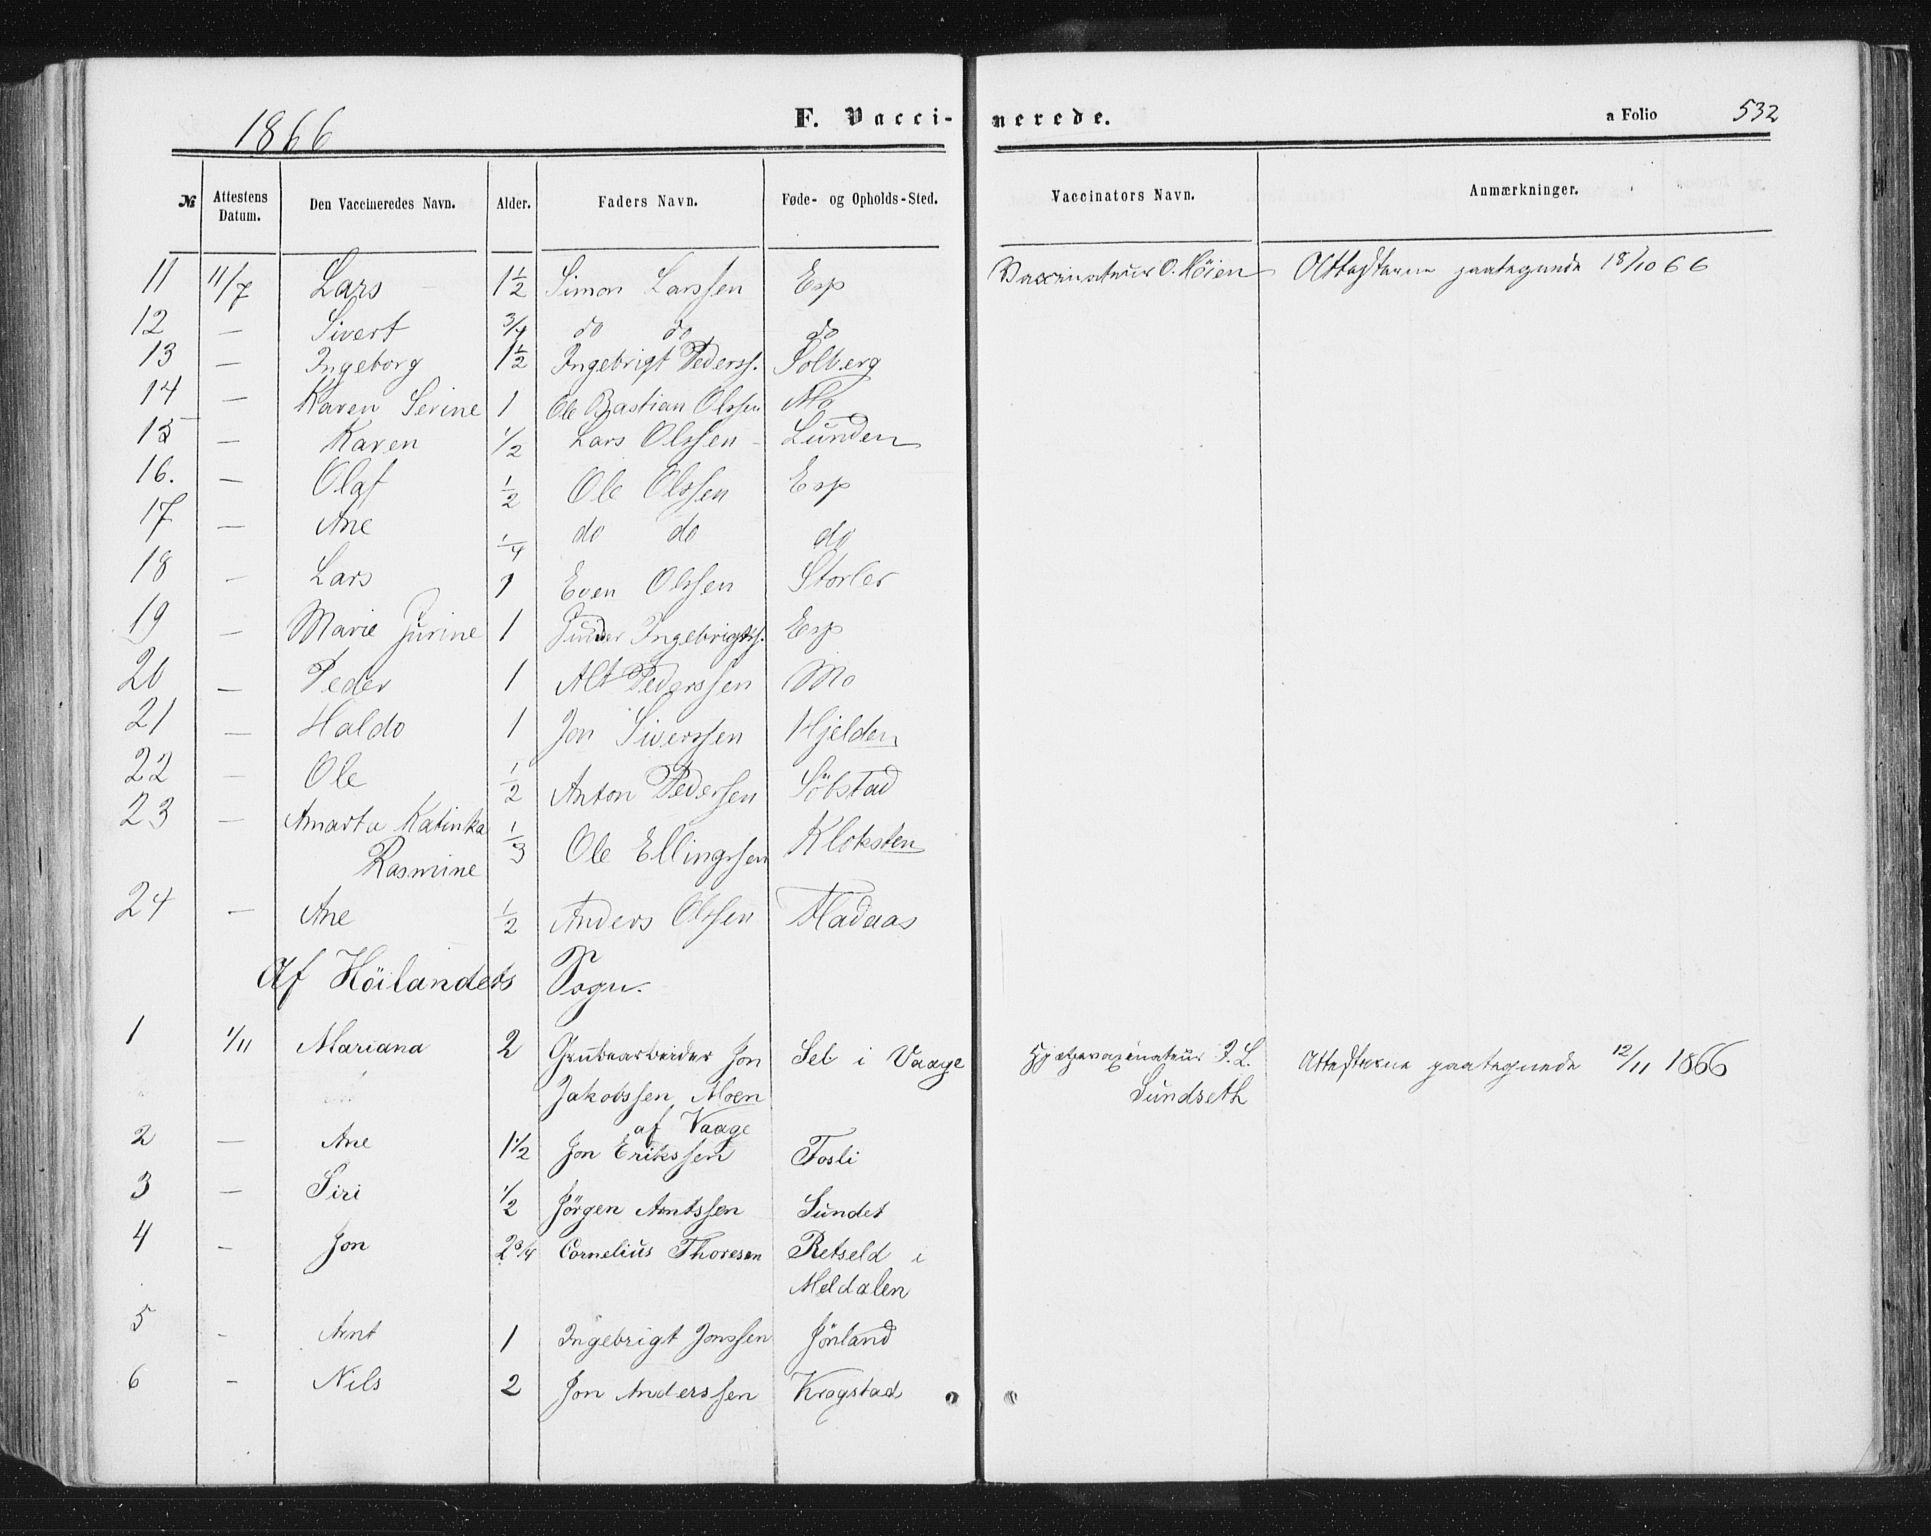 1866 F. Vacci-nerede. a Folio 532
№ Attestens Datum. Den Vaccineredes Navn. Alder. Faders Navn. Føde- og Opholds-Sted. Vaccinators Navn. Anmærkninger.
11 11/7 Lars 1½ Simon Larssen Esp Vaxinateur O. Höien Attesterne paategnede 18/10 66
12 — Sivert ¾ do do do
13 — Ingeborg 1½ Ingebrigt Pederss. Solberg
14 — Karen Serine 1 Ole Bastian Olssen Mo
15 — Karen ½ Lars Olssen Lunden
16. — Olaf ½ Ole Olssen Esp
17 — Ane ¼ do do do
18 — Lars 1 Even Olssen Storler
19 — Marie Jurine 1 Ingebrigtss. Esp
20 — Peder 1 Alt Pederssen Mo
21 — Haldo 1 Jon Siverssen Hjelden
22 — Ole ½ Anton Pederssen Söbstad
23 — Amarta Katinka ⅓ Ole Ellingssen Kloksten
Rasmine
24 — Ane ½ Anders Olssen Fladaas
Af Höilandets Sogn.
1 1/11 Mariana 2 Grubearbeider Jon Sel i Vaage Hjelpevaxinateur J. L. Attesterne paategnede 12/11 1866
Jakobssen Moen Sundseth
af Vaage
2 — Ane 1½ Jon Erikssen Fosli
3 — Siri ½ Jörgen Arntssen Sundet
4 - Jon 2¾ Cornelius Thoresen Retseld i
Meldalen
5 - Arnt 1 Ingebrigt Jonssen Jönland
6 - Nils 2 Jon Anderssen Krogstad